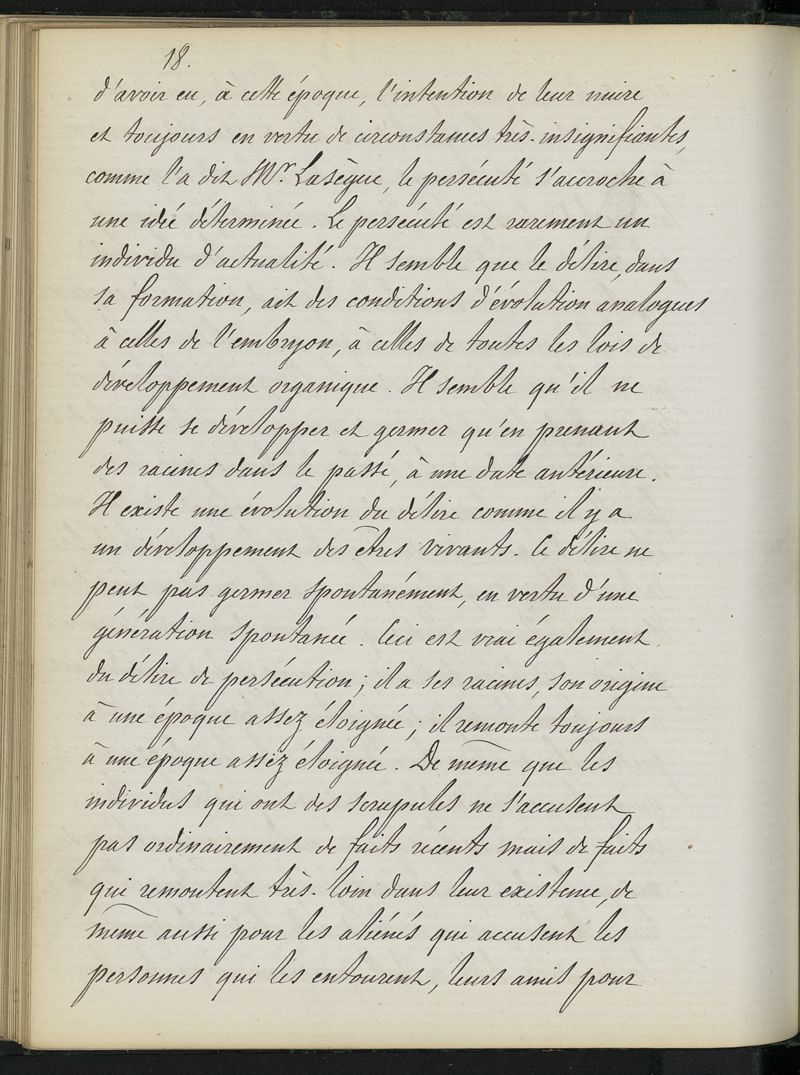 18.
d'avoir eu, à cette époque, l'intention de leur nuire
et toujours en vertu de circonstances très-insignifiantes,
comme l'a dit Mr. Lasègue, le persécuté s'accroche à
une idée déterminée. Le persécuté est rarement un
individu d'actualité. Il semble que le délire, dans
sa formation, ait des conditions d'évolution analogues
à celles de l'embryon, à celles de toutes les lois de
développement organique. Il semble qu'il ne
puisse se développer et germer qu'en prenant
des racines dans le passé, à une date antérieure.
Il existe une évolution du délire comme il y a
un développement des êtres vivants. Ce délire ne
peut pas germer spontanément, en vertu d'une
génération spontanée. Ceci est vrai également
du délire de persécution; il a ses racines, son origine
à une époque assez éloignée; il remonte toujours
à une époque assez éloignée. De même que les
individus qui ont des scrupules ne s'accusent
pas ordinairement de faits récents mais de faits
qui remontent très-loin dans leur existence, de
même aussi pour les aliénés qui accusent les
personnes qui les entourent, leurs amis pour